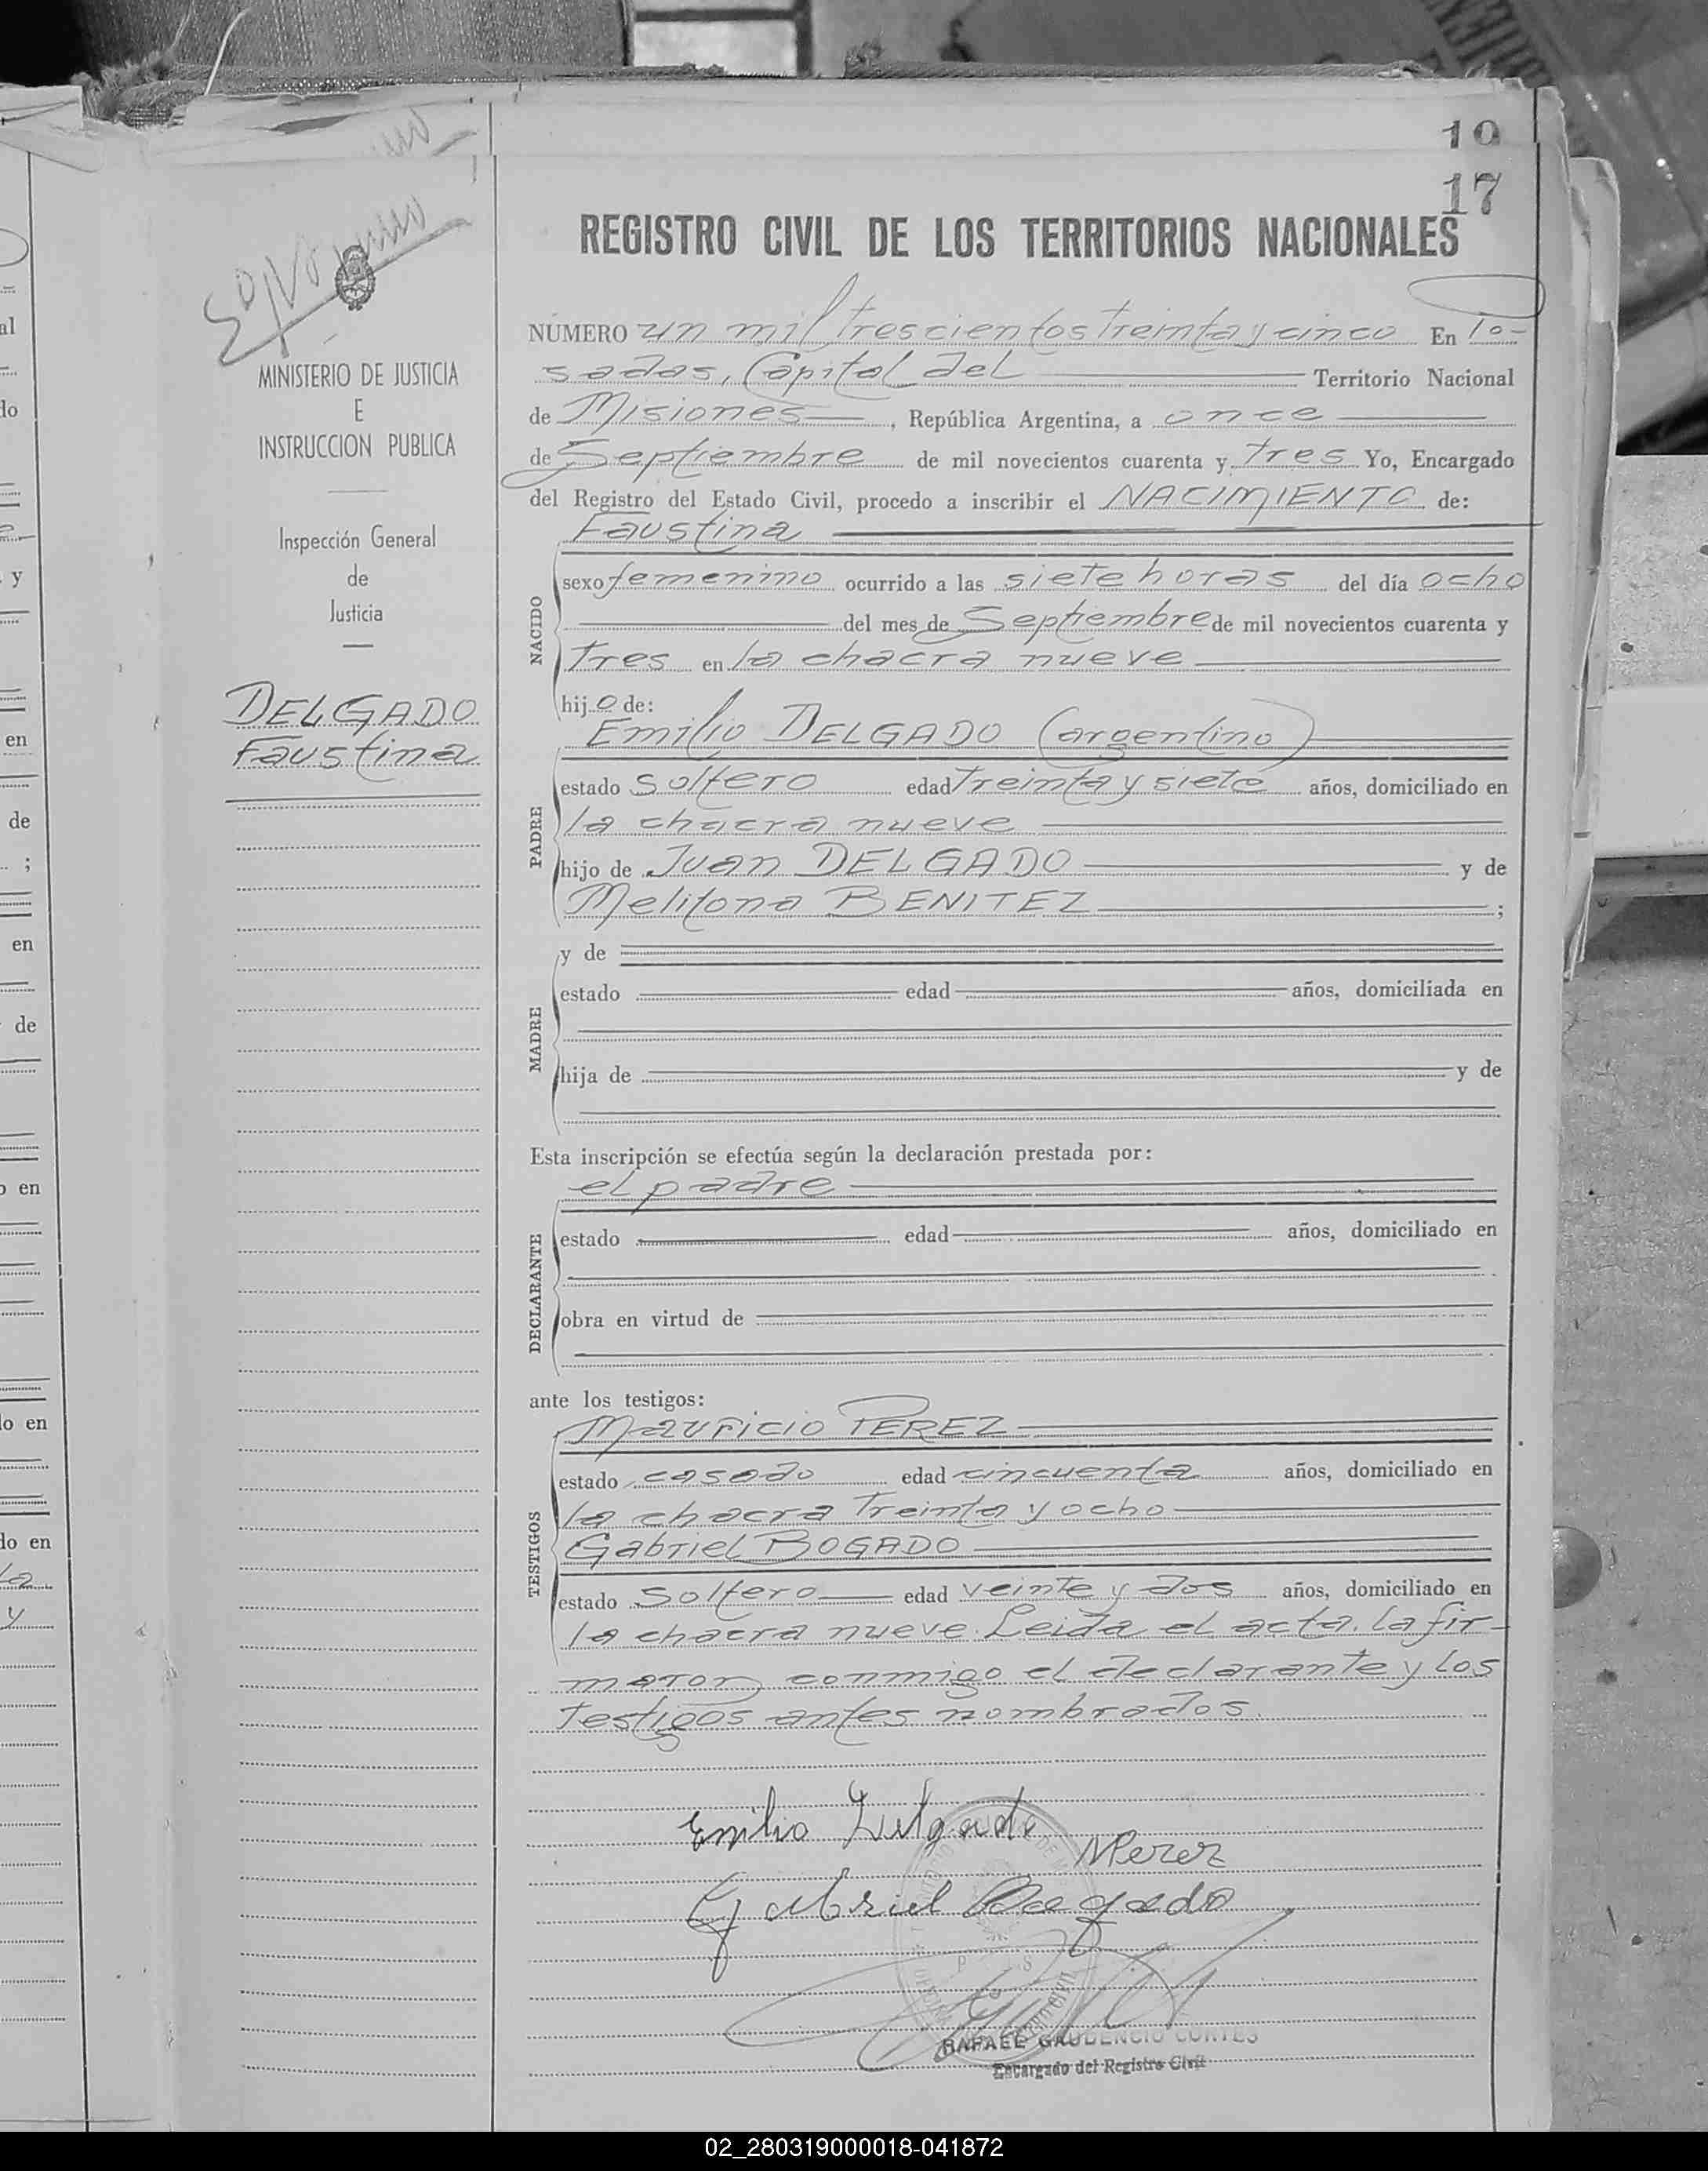 19
17
REGISTRO CIVIL DE LOS TERRITORIOS NACIONALES
MINISTERIO DE JUSTICIA
E
INSTRUCCION PUBLICA
Inspección General
de
Justicia
DELGADO
Faustina
NÚMERO un mil trescientos treinta y cinco En Po-
sadas, Capital del Territorio Nacional
de Misiones, República Argentina, a once
de Septiembre de mil novecientos cuarenta y tres Yo, Encargado
del Registro del Estado Civil, procedo a inscribir el NACIMIENTO de:
Faustina
NACIDO
sexo femenino ocurrido a las siete horas del día ocho
del mes de Septiembre de mil novecientos cuarenta y
tres en la chacra nueve
hijo de:
Emilio DELGADO (argentino)
PADRE
estado soltero edad treinta y siete años, domiciliado en
la chacra nueve
hijo de Juan DELGADO y de
Melitona BENITEZ ;
MADRE
y de
estado edad años, domiciliada en
hija de y de
Esta inscripción se efectúa según la declaración prestada por:
el padre
DECLARANTE
estado edad años, domiciliado en
obra en virtud de
ante los testigos:
Mauricio PEREZ
TESTIGOS
estado casado edad cincuenta años, domiciliado en
la chacra treinta y ocho
Gabriel BOGADO
estado soltero edad veinte y dos años, domiciliado en
la chacra nueve. Leida el acta, la fir-
maron conmigo el declarante y los
testigos antes nombrados.
Emilio Delgado
MPerez
Gabriel Bogado
RAFAEL GAUDENCIO CORTES
Encargado del Registro Civil
02_280319000018-041872